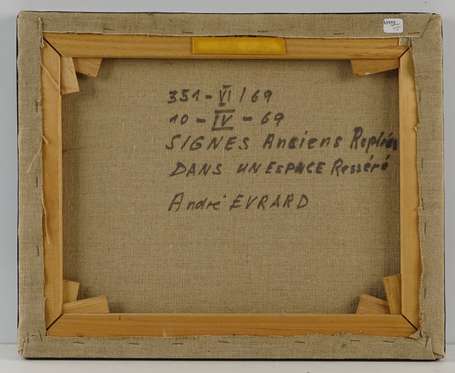 351-VI/69
10-IV-69
SIGNES Anciens Repliés
DANS UN ESPACE Resséré
André EVRARD